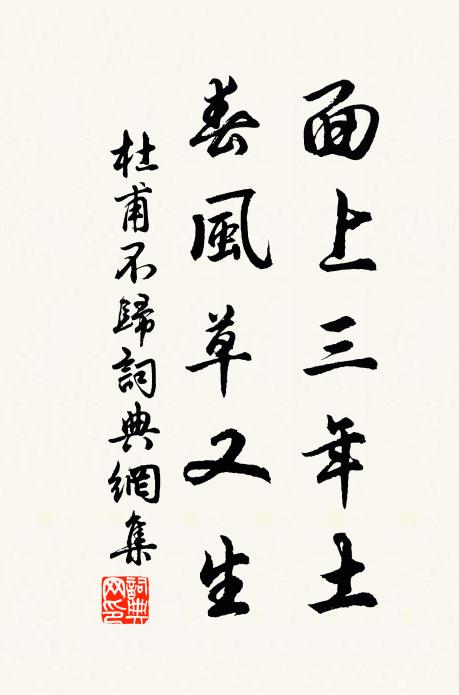 面上三年土
春風草又生
杜甫不歸詞典網集
詞典網印